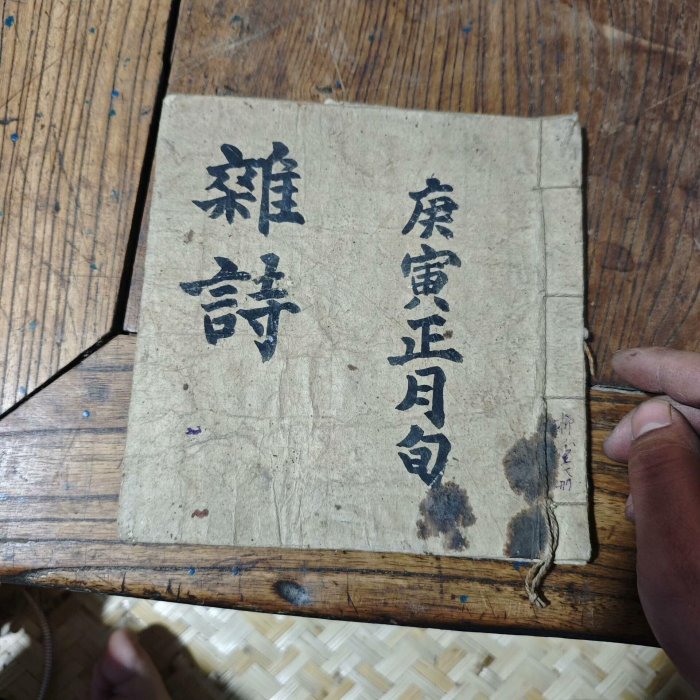 庚寅正月旬
雜詩